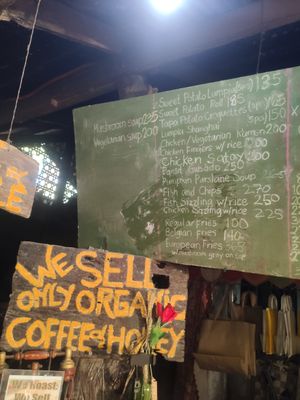 Mushroom soup 225
Vegetarian soup 200
Sweet Potato Lumpia 135
Sweet Potato Roll 185
Tapa Potato Croquettes 150
Lumpia Shanghai
Chicken/Vegetarian 200
Chicken Fingers w/ rice 200
Chicken Satay 200
Pansit Guisado 250
Pumpkin Purslane Soup
Fish and Chips 270
Fish Sizzling w/rice 250
Chicken Sizzling w/rice 225
Regular fries 100
Belgian fries 140
European Fries
w/mushroom gravy on top
WE SELL
ONLY ORGANIC
COFFEE & HONEY
We Roast
We Sell